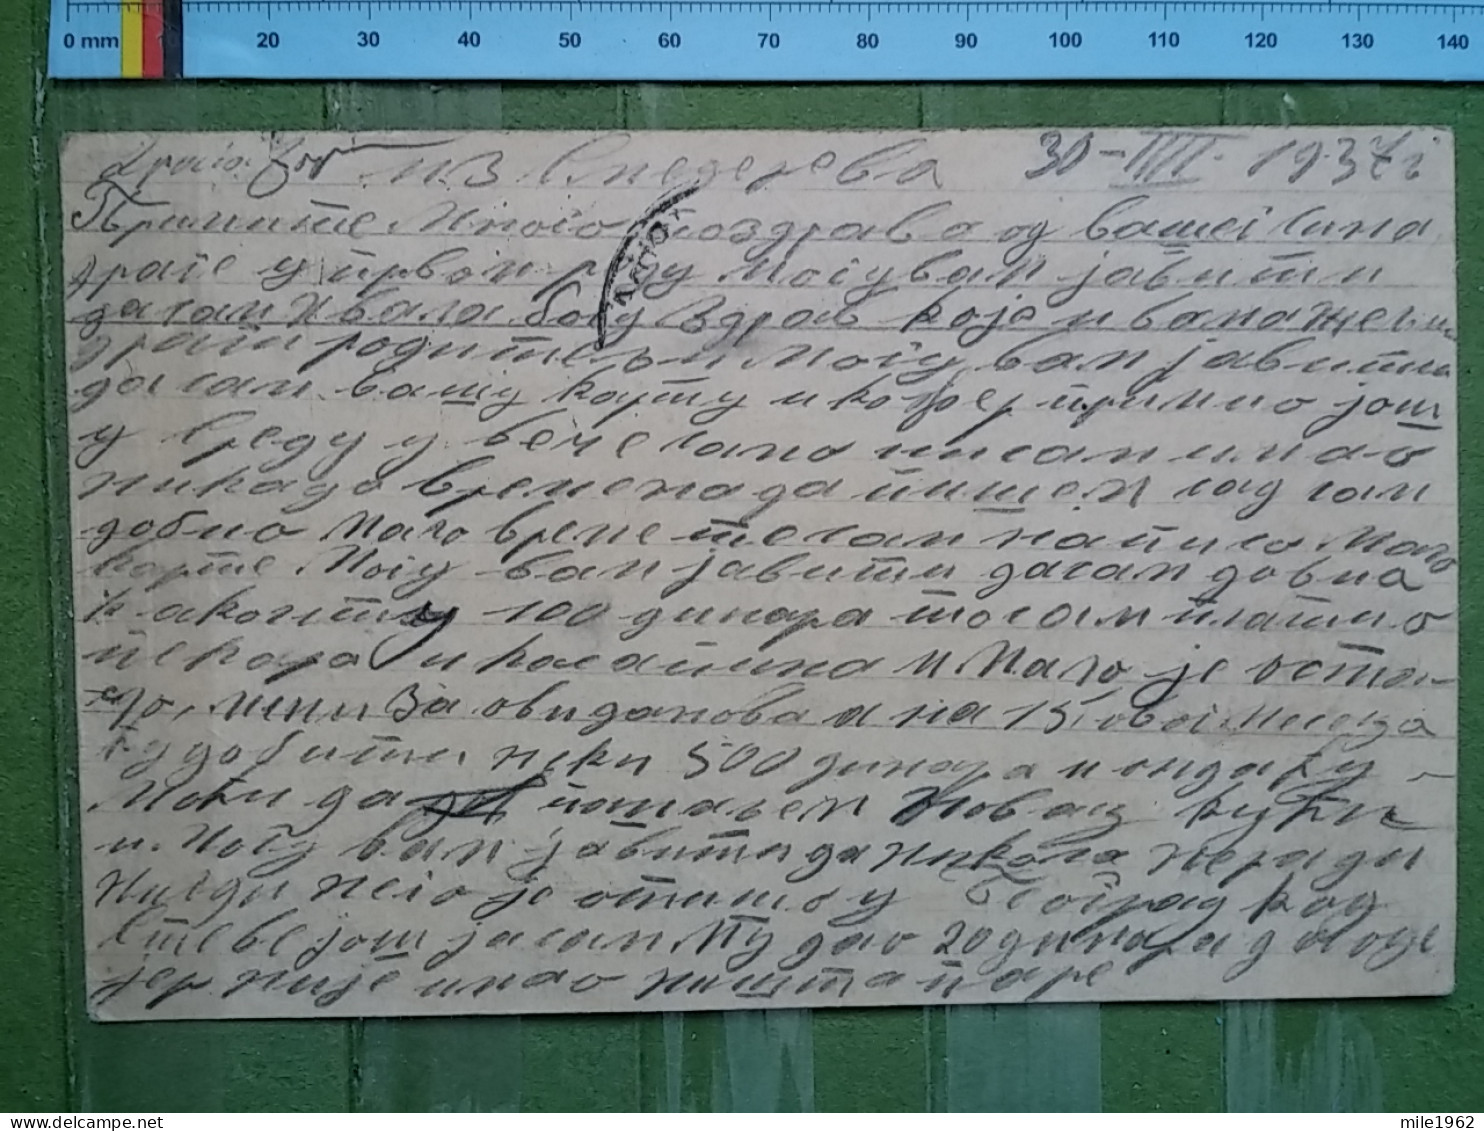 0 mm 20 30 40 50 60 70 80 90 100 110 120 130 140
из Смедерева 30-III-1937 г
Примите Много поздрава од вашег Сина
драге у првом реду могу вам јавити
да сам Хвала богу Здрав које и вама желим
драги родитељи могу вам јавити
да сам вашу карту и кофер примио још
у Среду у вече само нисам имао
никада времена да пишем сад сам
добио мало време те сам написо мало
карте Могу вам јавити да сам добио
100 динара то сам платио
пекара и и мало је оста-
ло, мени За ова два на 15 овог месеца
ћу добити неки 500 динара и онда ћу
моћи да пошаљем Новац кући
и могу вам јавити да Никола неради
нигди него је отишо у Београд код
Стеве још ја сам му дао 20 динара да оде
јер није имао ништа паре
mile1962